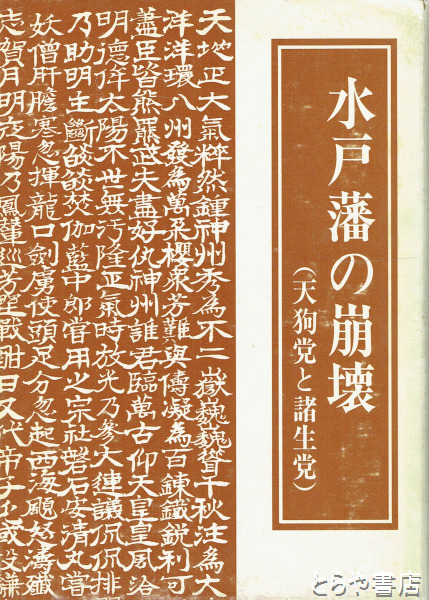 水戸藩の崩壊
(天狗党と諸生党)
天地正大氣粹然鍾神州秀為不二嶽巍巍聳千秋注為大
洋洋環八州發為萬朶櫻衆芳難與儔凝為百錬鐵鋭利可
藎臣皆熊羆武夫盡好仇神州誰君臨萬古仰天皇皇風洽
明徳侔太陽不世無汚隆正氣時放光乃參大連議侃侃排
乃助明主斷燄燄焚伽藍中郎嘗用之宗社磐石安清丸嘗
妖僧肝膽寒忽揮龍口劍虜使頭足分忽起西海颶怒濤殲
志賀月明夜陽乃鳳輦巡芳野戰酣日又代帝子屯或投鎌
とらや書店